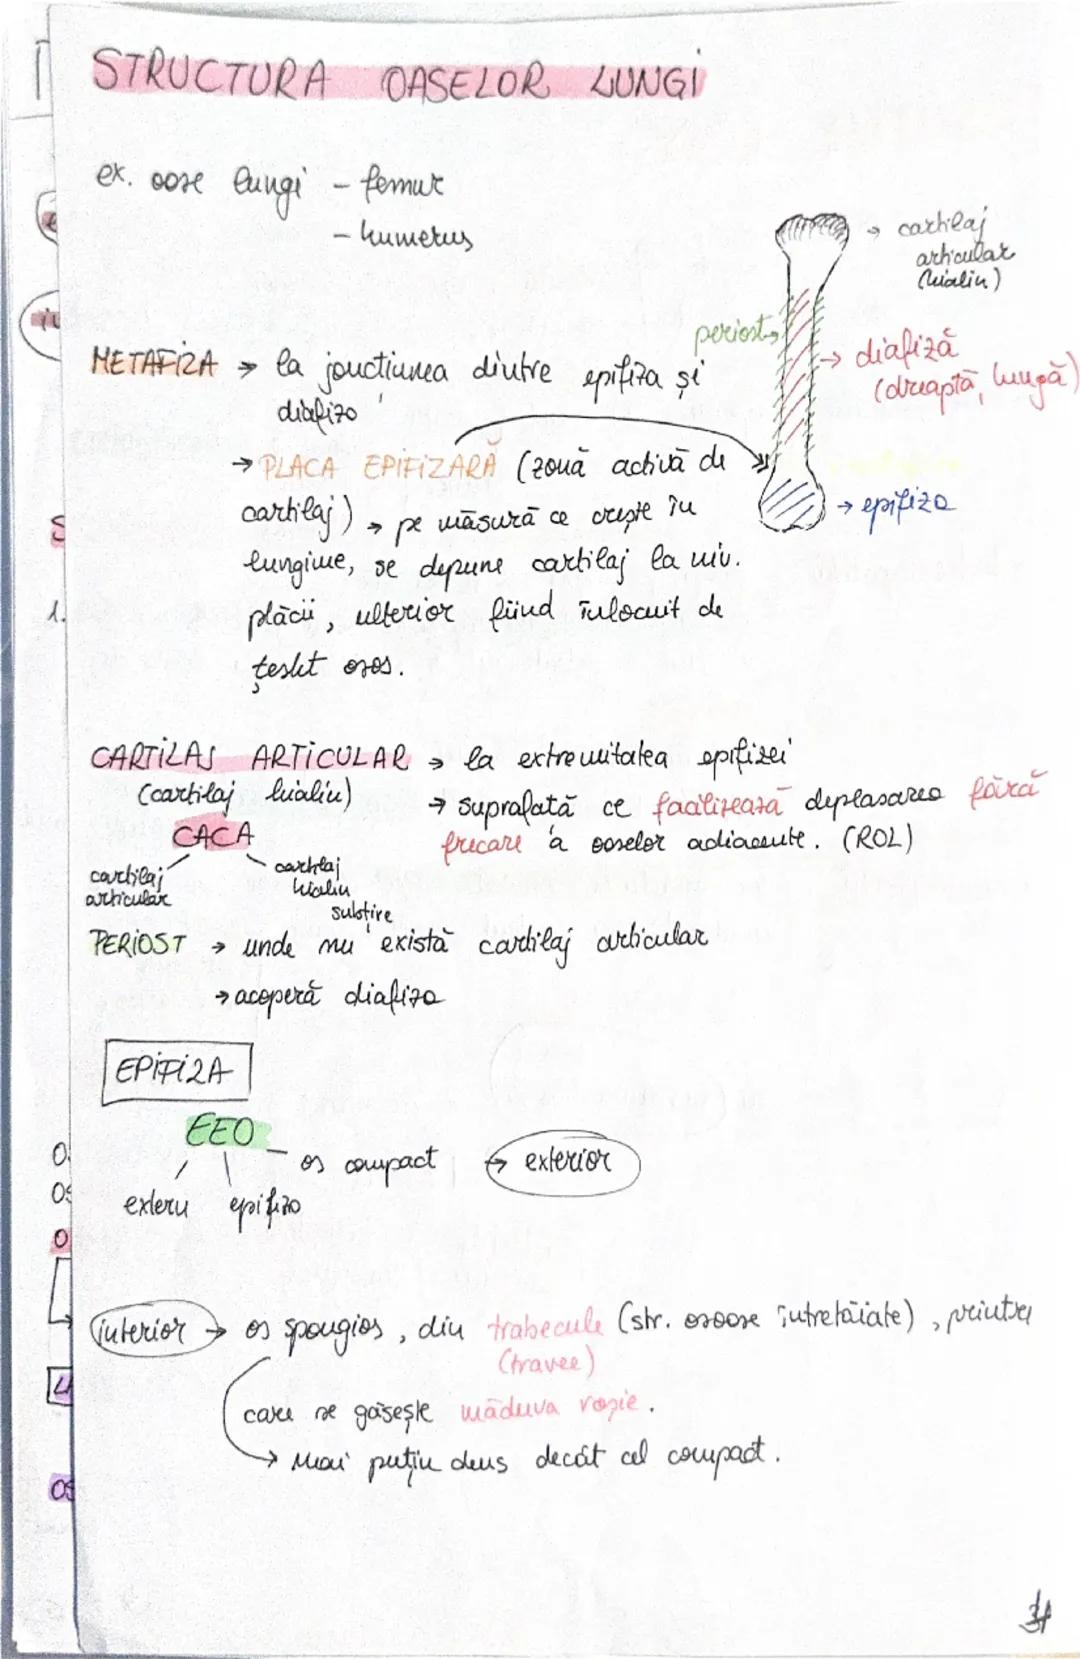 STRUCTURA OASELOR LUNGI
ex. oase lungi - femur
- humerus
cartilaj
articular
(hialin)
periost
diafiză
(dreaptă, lungă)
→ epifiza
METAFIZA → la joncțiunea dintre epifiza și
diafiza
→ PLACA EPIFIZARĂ (zonă activă de
cartilaj) → pe măsură ce crește în
lungime, se depune cartilaj la niv.
plăcii, ulterior fiind înlocuit de
țesut osos.
CARTILAJ ARTICULAR → la extremitatea epifizei
(cartilaj hialin) → suprafață ce facilizează deplasarea fără
frecare a oaselor adiacente. (ROL)
CACA
cartilaj
articular
cartilaj
hialin
subțire
PERIOST → unde nu există cartilaj articular
→ acoperă diafiza
EPIFIZA
EEO
extern epifiza os compact → exterior
interior → os spongios, din trabecule (str. osoase întretăiate), printre
(travee)
care se găsește măduva roșie.
→ Mai puțin dens decât cel compact.